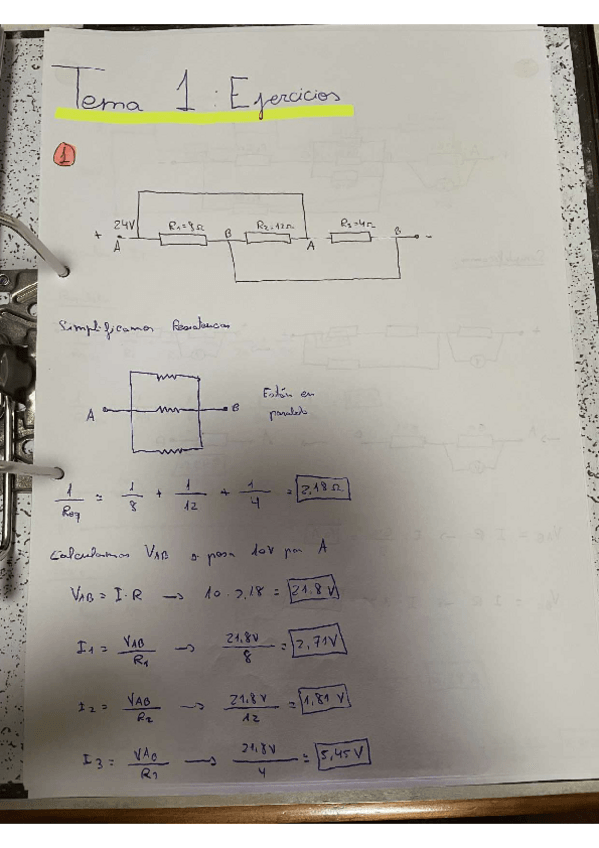 Tema 1 : Ejercicios
1
24V R1=8Ω R2=12Ω R3=4Ω
+ A B A B -
Simplificamos Resistencias
A B Están en
paralelo
1/Req = 1/8 + 1/12 + 1/4 = 2,18 Ω
Calculamos VAB si pasa 10V por A
VAB = I·R → 10 · 2,18 = 21.8 V
I1 = VAB/R1 → 21,8V/8 = 2,71V
I2 = VAB/R2 → 21,8V/12 = 1,81 V
I3 = VAB/R3 → 21,8V/4 = 5,45 V